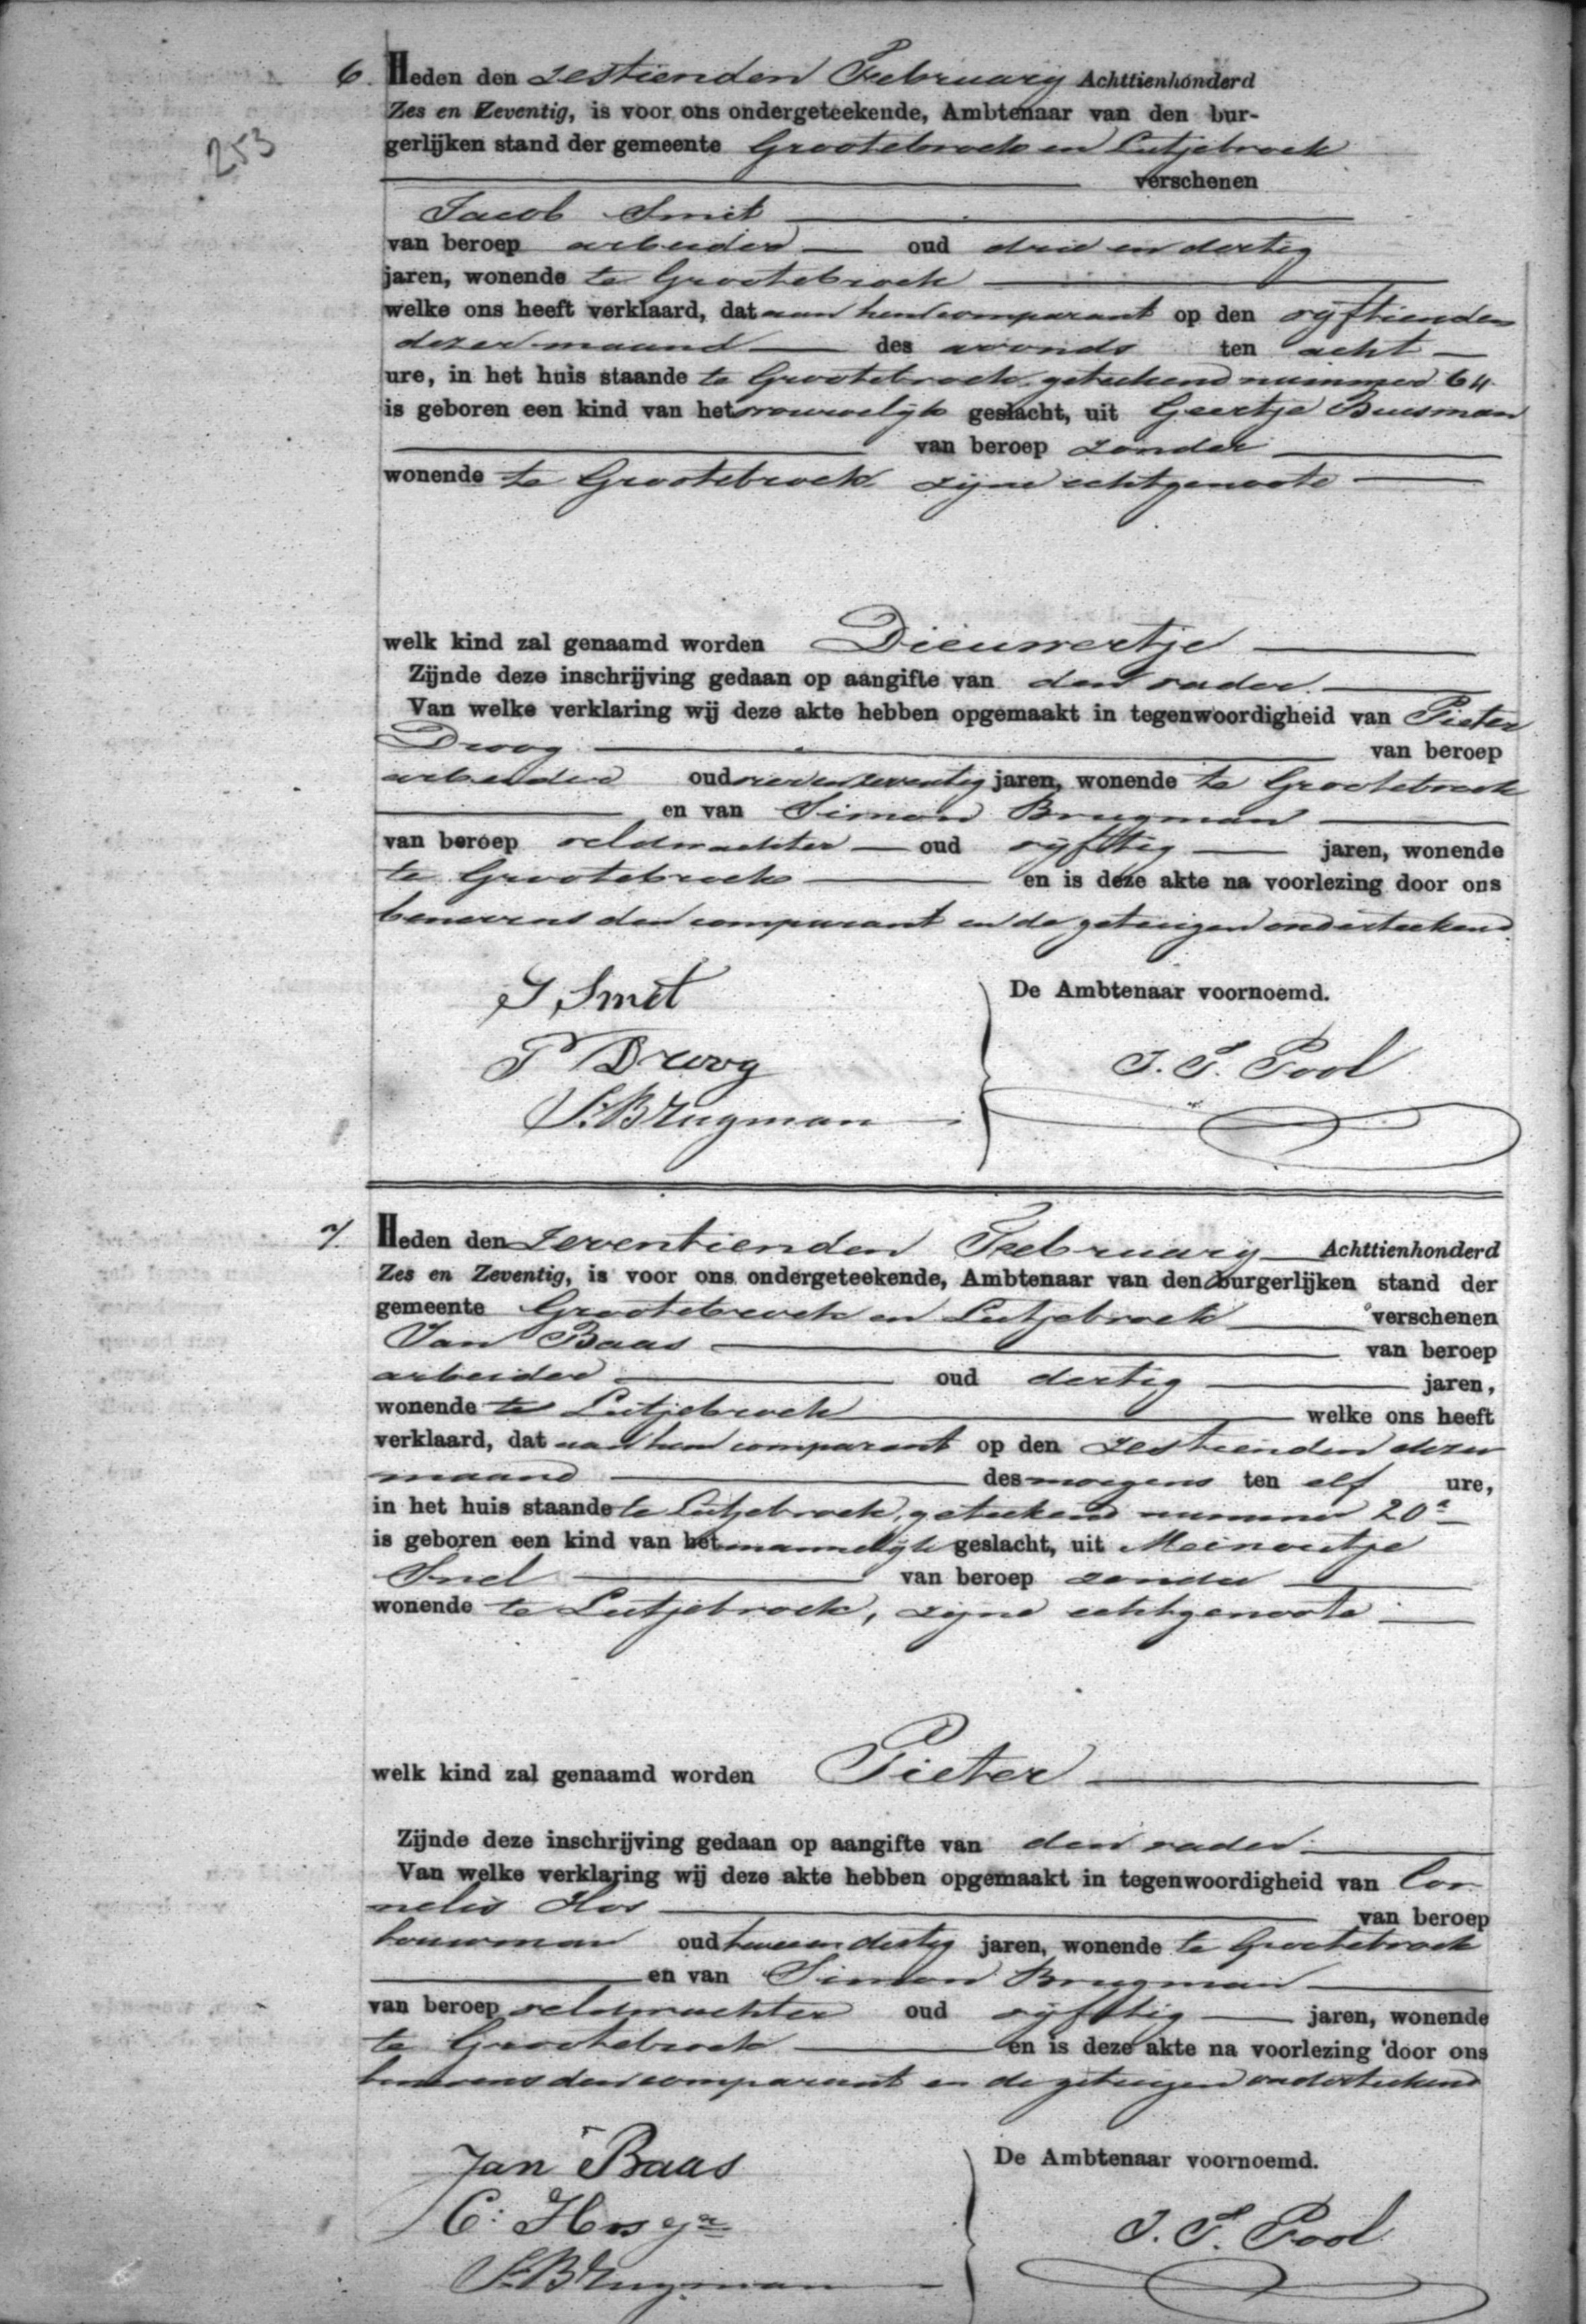 6. Heden den zestienden February Achttienhonderd
253
Zes en Zeventig, is voor ons ondergeteekende, Ambtenaar van den bur-
gerlijken stand der gemeente Grootebroek en Lutjebroek
verschenen
Jacob Smit
van beroep arbeider oud drie en dertig
jaren, wonende te Grootebroek
welke ons heeft verklaard, dat aan hem comparant op den vijftienden
dezer maand des avonds ten acht
ure, in het huis staande te Grootebroek, geteekend nummer 64
is geboren een kind van het vrouwelijk geslacht, uit Geertje Buisman
van beroep zonder
wonende te Grootebroek zijne echtgenoote
welk kind zal genaamd worden Dieuwertje
Zijnde deze inschrijving gedaan op aangifte van den vader.
Van welke verklaring wij deze akte hebben opgemaakt in tegenwoordigheid van Pieter
Droog van beroep
arbeider oud vier en zeventig jaren, wonende te Grootebroek
en van Simon Brugman
van beroep veldwachter oud vijftig jaren, wonende
te Grootebroek en is deze akte na voorlezing door ons
benevens den comparant en de getuigen onderteekend.
J Smit
De Ambtenaar voornoemd.
P Droog
J. P. Pool
S. Brugman
7. Heden den Zeventienden February Achttienhonderd
Zes en Zeventig, is voor ons ondergeteekende, Ambtenaar van den burgerlijken stand der
gemeente Grootebroek en Lutjebroek verschenen
Jan Baas van beroep
arbeider oud dertig jaren,
wonende te Lutjebroek welke ons heeft
verklaard, dat aan hem comparant op den zestienden dezer
maand des morgens ten elf ure,
in het huis staande te Lutjebroek, geteekend nummer 20a
is geboren een kind van het mannelijk geslacht, uit Meinoutje
Snel van beroep zonder
wonende te Lutjebroek, zijne echtgenoote
welk kind zal genaamd worden Pieter
Zijnde deze inschrijving gedaan op aangifte van den vader.
Van welke verklaring wij deze akte hebben opgemaakt in tegenwoordigheid van Cor
nelis Hos van beroep
bouwman oud twee en dertig jaren, wonende te Grootebroek
en van Simon Brugman
van beroep veldwachter oud vijftig jaren, wonende
te Grootebroek en is deze akte na voorlezing door ons
benevens den comparant en de getuigen onderteekend
Jan Baas
De Ambtenaar voornoemd.
C: Hos
J. P. Pool
S. Brugman